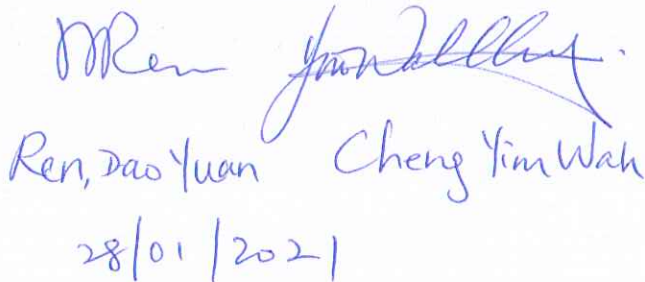 Ren, Dao Yuan Cheng Yim Wah
28/01/2021